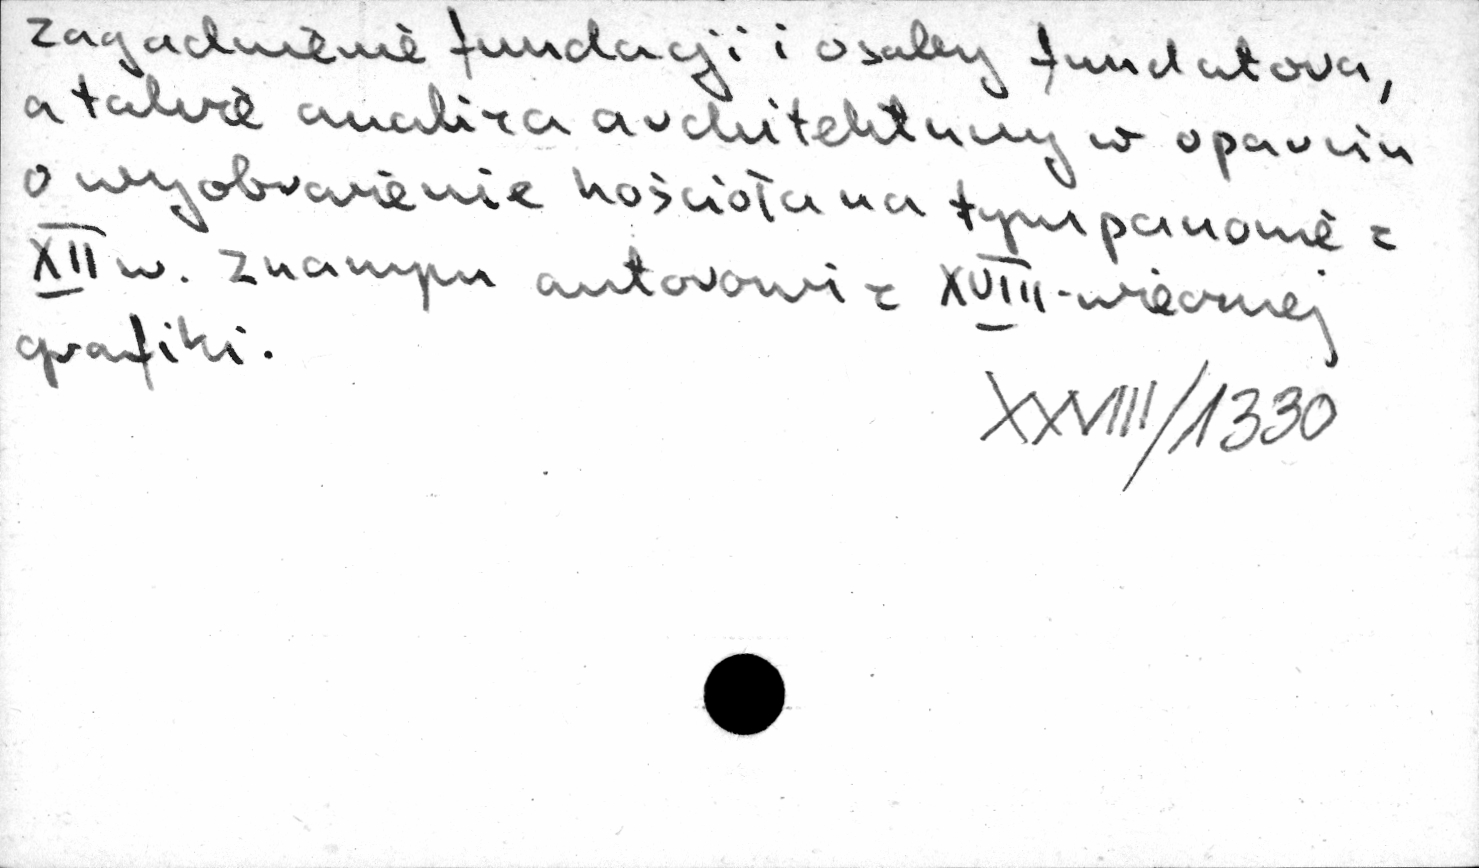 zagadnienie fundacji i osoby fundatora,
a także analiza architektury w oparciu
o wyobrażenie kościoła na tympanonie z
XII w. znanym autorowi z XVIII-wiecznej
grafiki.
XXVIII/1330